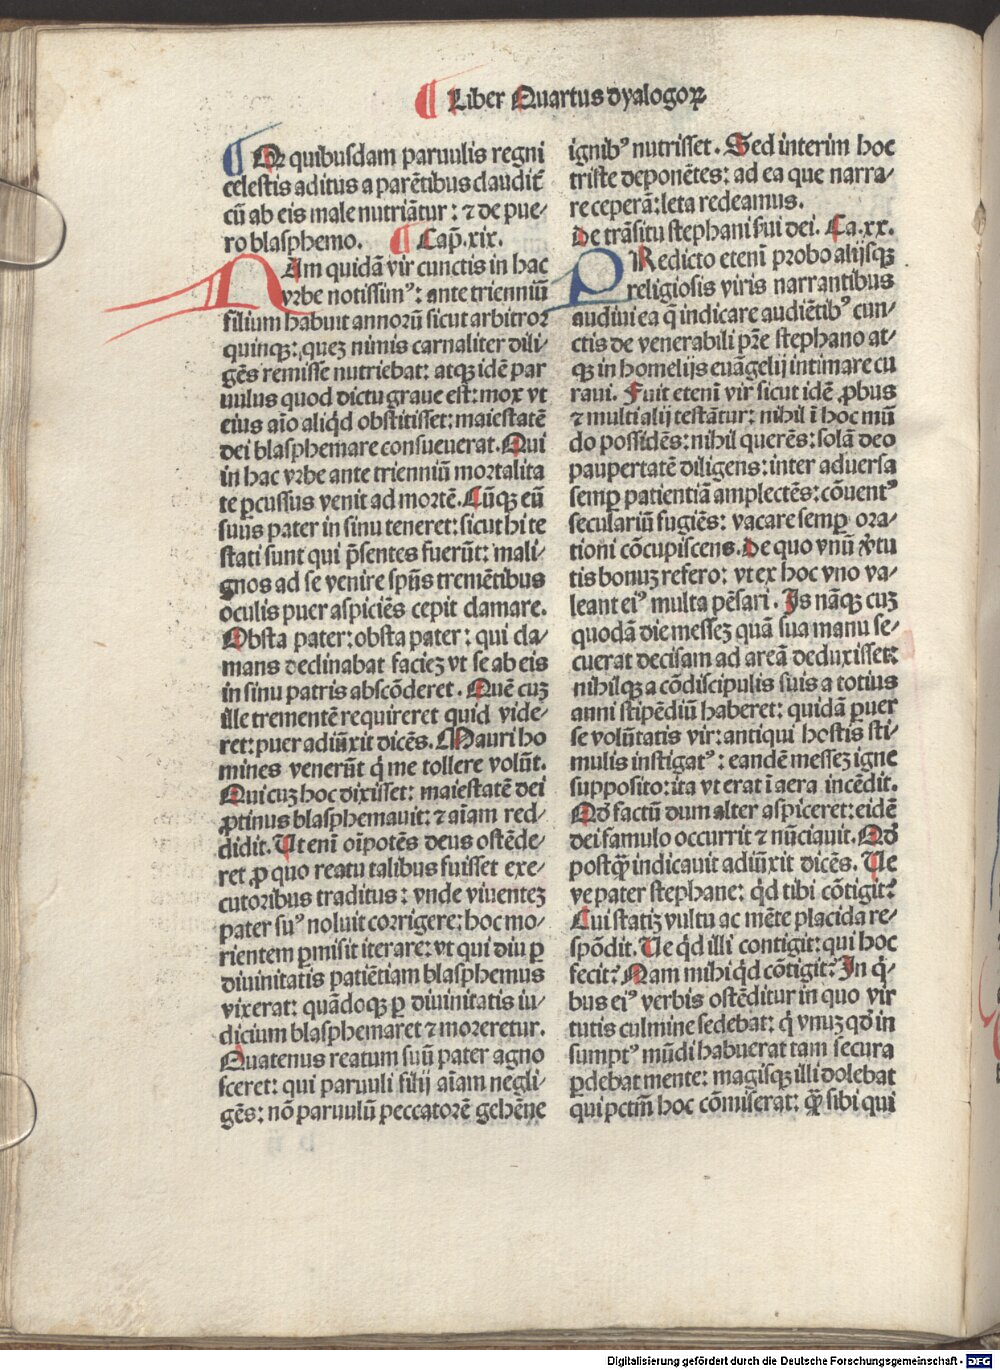 ¶ Liber Quartus dyalogoꝝ
¶ Qꝛ quibusdam paruulis regni
celestis aditus a parētibus claudit̄
cū ab eis male nutriātur: ⁊ de pue⸗
ro blasphemo. ¶ Cap̄.xix.
NAm quidā vir cunctis in hac
vrbe notissimꝰ: ante trienniū
filium habuit annoꝝ sicut arbitroꝛ
quinqꝫ: queꝫ nimis carnaliter dili⸗
gēs remisse nutriebat: atqꝫ idē par
uulus quod dictu graue est: mox vt
eius aīo aliq̇d obstitisset: maiestatē
dei blasphemare consueuerat. Qui
in hac vrbe ante trienniū moꝛtalita
te ꝑcussus venit ad moꝛtē. Cūqꝫ eū
suus pater in sinu teneret: sicut hi te
stati sunt qui p̄sentes fuerūt: mali⸗
gnos ad se venire spūs tremētibus
oculis puer aspiciēs cepit clamare.
Obsta pater: obsta pater: qui cla⸗
mans declinabat facieꝫ vt se ab eis
in sinu patris abscōderet. Quē cuꝫ
ille trementē requireret quid vide⸗
ret: puer adiūxit dicēs. Mauri ho
mines venerūt q̇ me tollere volūt.
Qui cuꝫ hoc dixisset: maiestatē dei
ꝓtinus blasphemauit: ⁊ aīam red⸗
didit. Ut enī oīpotēs deus ostēde⸗
ret ꝓ quo reatu talibus fuisset exe⸗
cutoribus traditus: vnde viuenteꝫ
pater suꝰ noluit coꝛrigere: hoc mo⸗
rientem ꝑmisit iterare: vt qui diu ꝑ
diuinitatis patiētiam blasphemus
vixerat: quādoqꝫ ꝑ diuinitatis iu⸗
dicium blasphemaret ⁊ moꝛeretur.
Quatenus reatum suū pater agno
sceret: qui paruuli filij aīam negli⸗
gēs: nō paruulū peccatoꝛē gehēne
ignibꝰ nutrisset. Sed interim hoc
triste deponētes: ad ea que narra⸗
re ceperā: leta redeamus.
De trāsitu stephani serui dei. Ca.xx.
PRedicto etenī probo alijsqꝫ
religiosis viris narrantibus
audiui ea q̄ indicare audiētibꝰ cun⸗
ctis de venerabili pr̄e stephano at⸗
qꝫ in homelijs euāgelij intimare cu
raui. Fuit etenī vir sicut idē ꝓbus
⁊ multi alij testātur: nihil ī hoc mū
do possidēs: nihil querēs: solā deo
paupertatē diligens: inter aduersa
semꝑ patientiā amplectēs: cōuentꝰ
seculariū fugiēs: vacare semꝑ oꝛa⸗
tioni cōcupiscens. De quo vnū v̓tu
tis bonuꝫ refero: vt ex hoc vno va⸗
leant eiꝰ multa pēsari. Is nāqꝫ cuꝫ
quodā die messeꝫ quā sua manu se⸗
cuerat decisam ad areā deduxisset:
nihilqꝫ a cōdiscipulis suis a totius
anni stipēdiū haberet: quidā ꝑuer
se volūtatis vir: antiqui hostis sti⸗
mulis instigatꝰ: eandē messeꝫ igne
supposito: ita vt erat ī aera incēdit.
Qd̓ factū dum alter aspiceret: eidē
dei famulo occurrit ⁊ nūciauit. Qd̓
postq̄ꝫ indicauit adiūxit dicēs. Ue
ve pater stephane: q̇d tibi cōtigit?
Cui statiꝫ vultu ac mēte placida re⸗
spōdit. Ue q̇d illi contigit: qui hoc
fecit? Nam mihi q̇d cōtigit? In q̇⸗
bus eiꝰ verbis ostēditur in quo vir
tutis culmine sedebat: q̇ vnuꝫ qd̓ in
sumptꝰ mūdi habuerat tam secura
ꝑdebat mente: magisqꝫ illi dolebat
qui pctm̄ hoc cōmiserat: q̄ꝫ sibi qui